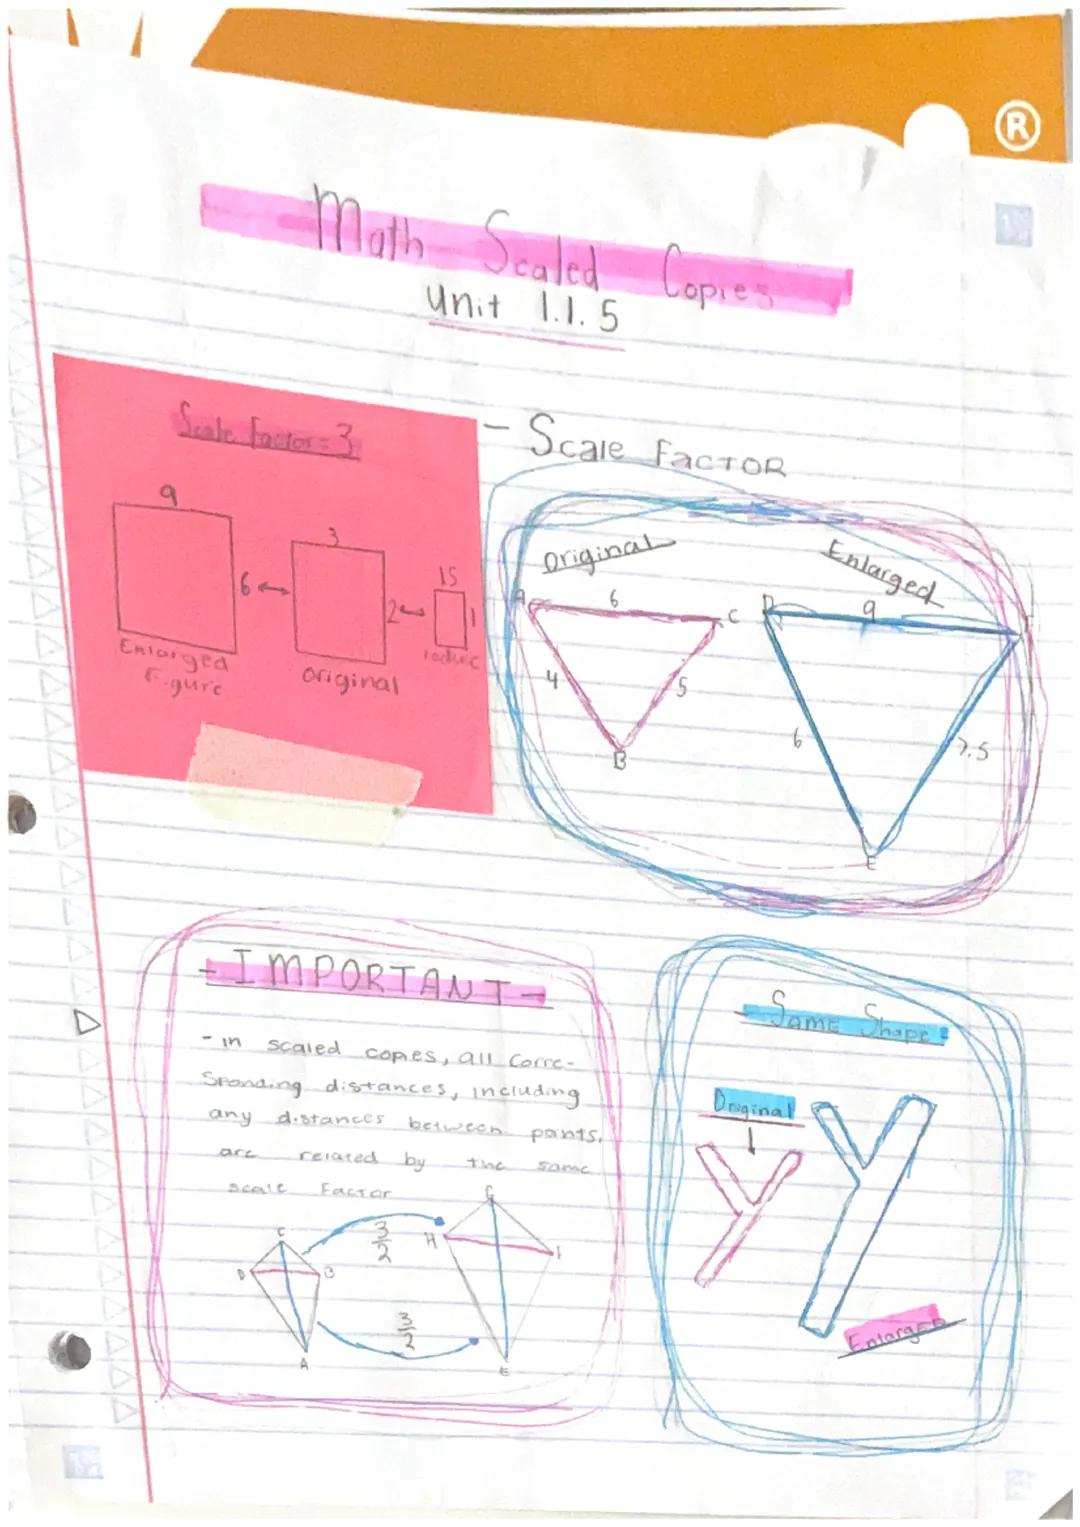 ®
Math Scaled Copies
Unit 1.1.5
Scale Factor = 3
9
6
Enlarged
Figure
3
2
original
15
1
- Scale Factor
Original
A
6
C
4
5
B
Enlarged
D
9
6
7.5
E
- IMPORTANT -
- in scaled copies, all corre-
sponding distances, including
any distances between points,
are related by the same
scale Factor
C
D
B
A
3
2
3
2
G
H
F
E
- Same Shape -
Original
Enlarged